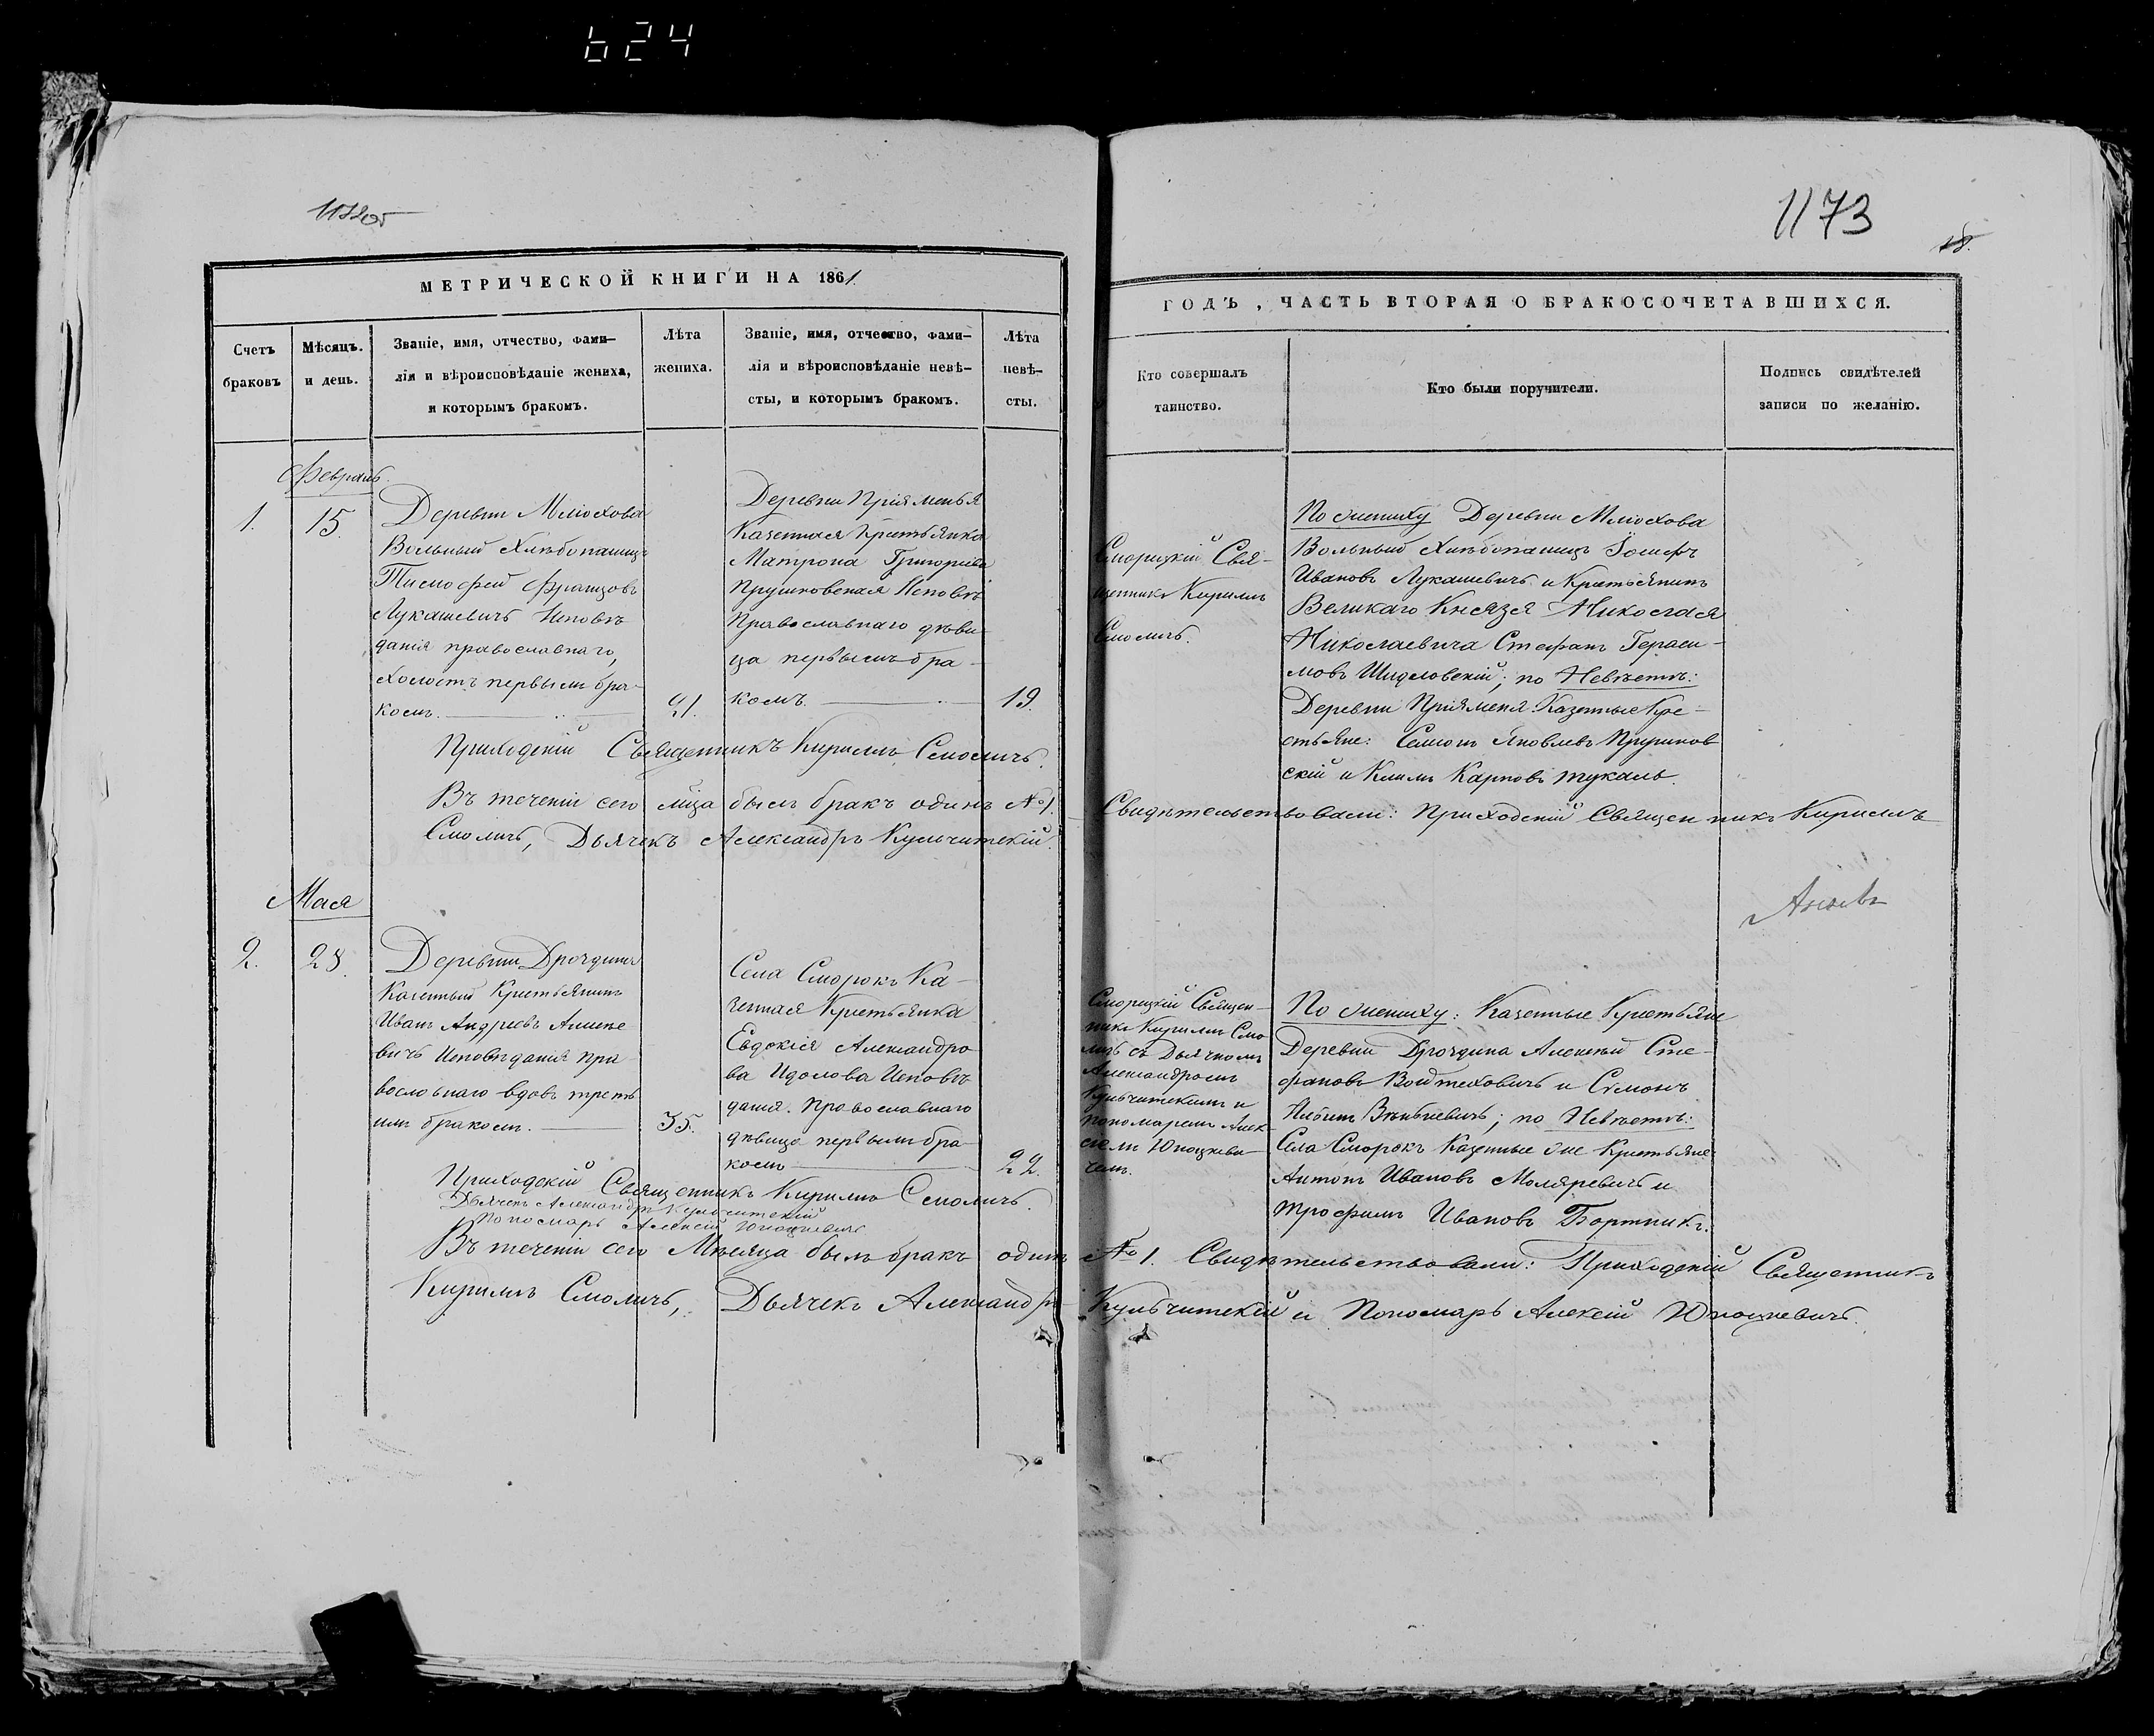 624
1173
МЕТРИЧЕСКОЙ КНИГИ НА 1861
ГОДЪ, ЧАСТЬ ВТОРАЯ О БРАКОСОЧЕТАВШИХСЯ.
Счетъ
браковъ
Мѣсяцъ.
и день.
Званіе, имя, отчество, фами-
лія и вѣроисповѣданіе жениха,
и которымъ бракомъ.
Лѣта
жениха.
Званіе, имя, отчество, фами-
лія и вѣроисповѣданіе невѣ-
сты, и которымъ бракомъ.
Лѣта
невѣ-
сты.
Кто совершалъ
таинство.
Кто были поручители.
Подпись свидѣтелей
записи по желанію.
Февраль.
1.
15.
Деревни Млюхова
Вольный Хлѣбопашецъ
Тимофей Францовъ
Лукашевичъ Исповѣ
данія православнаго,
холостъ первымъ бра-
комъ.
21.
Деревни Пріяменья
Казенная Крестьянка
Матрона Григоріева
Прушковская Исповѣ
Православнаго дѣви-
ца первымъ бра-
комъ.
19.
Сморицкій Свя-
щенникъ Кириллъ
Смоличъ.
По жениху Деревни Млюхова
Вольный Хлѣбопашецъ Іосифъ
Ивановъ Лукашевичъ и Крестьянинъ
Великаго Князя Николая
Николаевича Стефанъ Гераси-
мовъ Шидловскій; по Невѣстѣ:
Деревни Пріяменя Казенные Кре-
стьяне: Семіонъ Яковлевъ Прушков
скій и Климъ Карповъ Тукаль.
Приходскій Священникъ Кириллъ Смоличъ.
Въ теченіи сего м-ца былъ бракъ одинъ №1. Свидѣтельствовали: Приходскій Священникъ Кириллъ
Смоличъ, Дьячекъ Александръ Кульчитскій.
Мая
2.
28.
Деревни Дроздина
Казенный Крестьянинъ
Иванъ Андреевъ
вичъ Исповѣданія пра
вославнаго вдовъ треть
имъ бракомъ.
35.
Села Сморокъ Ка-
зенная Крестьянка
Евдокія Александро
ва Идолова Исповѣ
данія Православнаго
дѣвица первымъ бра-
комъ
22.
Сморицкій Священ-
никъ Кириллъ Смо
личъ съ Дьячкомъ
Александромъ
Кульчитскимъ и
пономаремъ Алек-
сѣемъ Юноцкеви-
чемъ.
По жениху: Казенные Крестьяне
Деревни Дроздина Алексѣй Сте-
фановъ Войтеховичъ и Сѵмонъ
по Невѣстѣ:
Села Сморокъ Казенные же Крестьяне
Антонъ Ивановъ Моляревичъ и
Трофимъ Ивановъ Бортникъ.
Приходскій Священникъ Кириллъ Смоличъ.
Дьячекъ Александръ Кульчитскій
Пономарь Алексій Юноцкевичъ
Въ теченіи сего Мѣсяца былъ бракъ одинъ №1. Свидѣтельствовали: Приходскій Священникъ
Кириллъ Смоличъ, Дьячекъ Александръ Кульчитскій и Пономарь Алексій Юноцкевичъ.